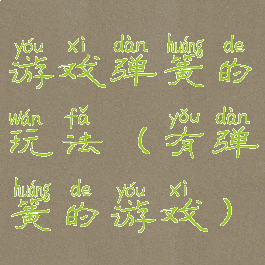 yóu xì dàn huáng de
游戏弹簧的
wán fǎ yǒu dàn
玩法（有弹
huáng de yóu xì
簧的游戏）